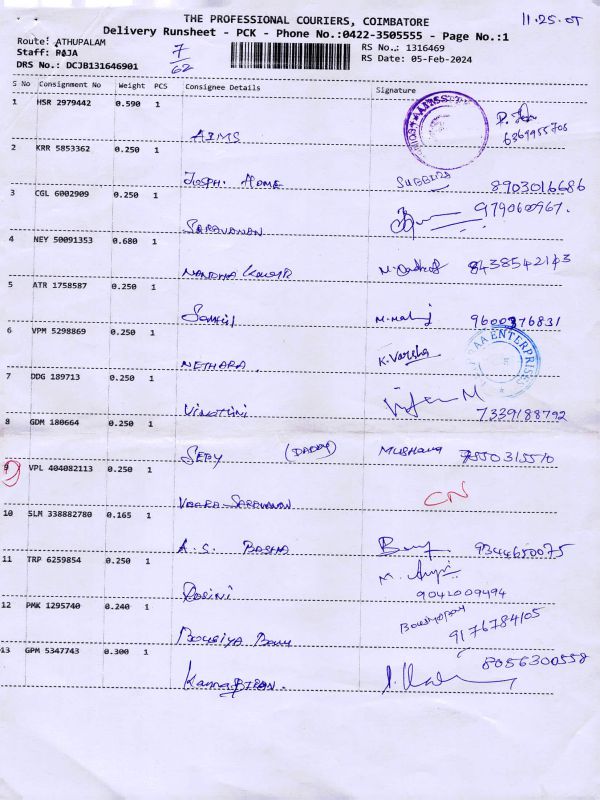 THE PROFESSIONAL COURIERS, COIMBATORE
11.25.05
Delivery Runsheet - PCK - Phone No.:0422-3505555 - Page No.:1
Route: ATHUPALAM
RS No.: 1316469
Staff: RAJA
7/62
RS Date: 05-Feb-2024
DRS No.: DCJB131646901
S No Consignment No Weight PCS Consignee Details Signature
1 HSR 2979442 0.590 1
AIMS
6369955708
2 KRR 5853362 0.250 1
Joseph. Home 8903016686
3 CGL 6002909 0.250 1
Saravanan 979060967.
4 NEY 50091353 0.680 1
Nandha Kumar 8438542143
5 ATR 1758587 0.250 1
M. Malij 9600376831
6 VPM 5298869 0.250 1
NETHARA. K. Varsha
AA ENTERPRISES
7 DDG 189713 0.250 1
Vinothini 7339188792
8 GDM 180664 0.250 1
Seby (DADDY) Mushana 7550315510
9 VPL 404082113 0.250 1
Veera Saravanan CN
10 SLM 338882780 0.165 1
A. S. Basha 9344650075
11 TRP 6259854 0.250 1
Rosini 9042009494
12 PMK 1295740 0.240 1
Bousiya Banu 9176784105
13 GPM 5347743 0.300 1
8056300558